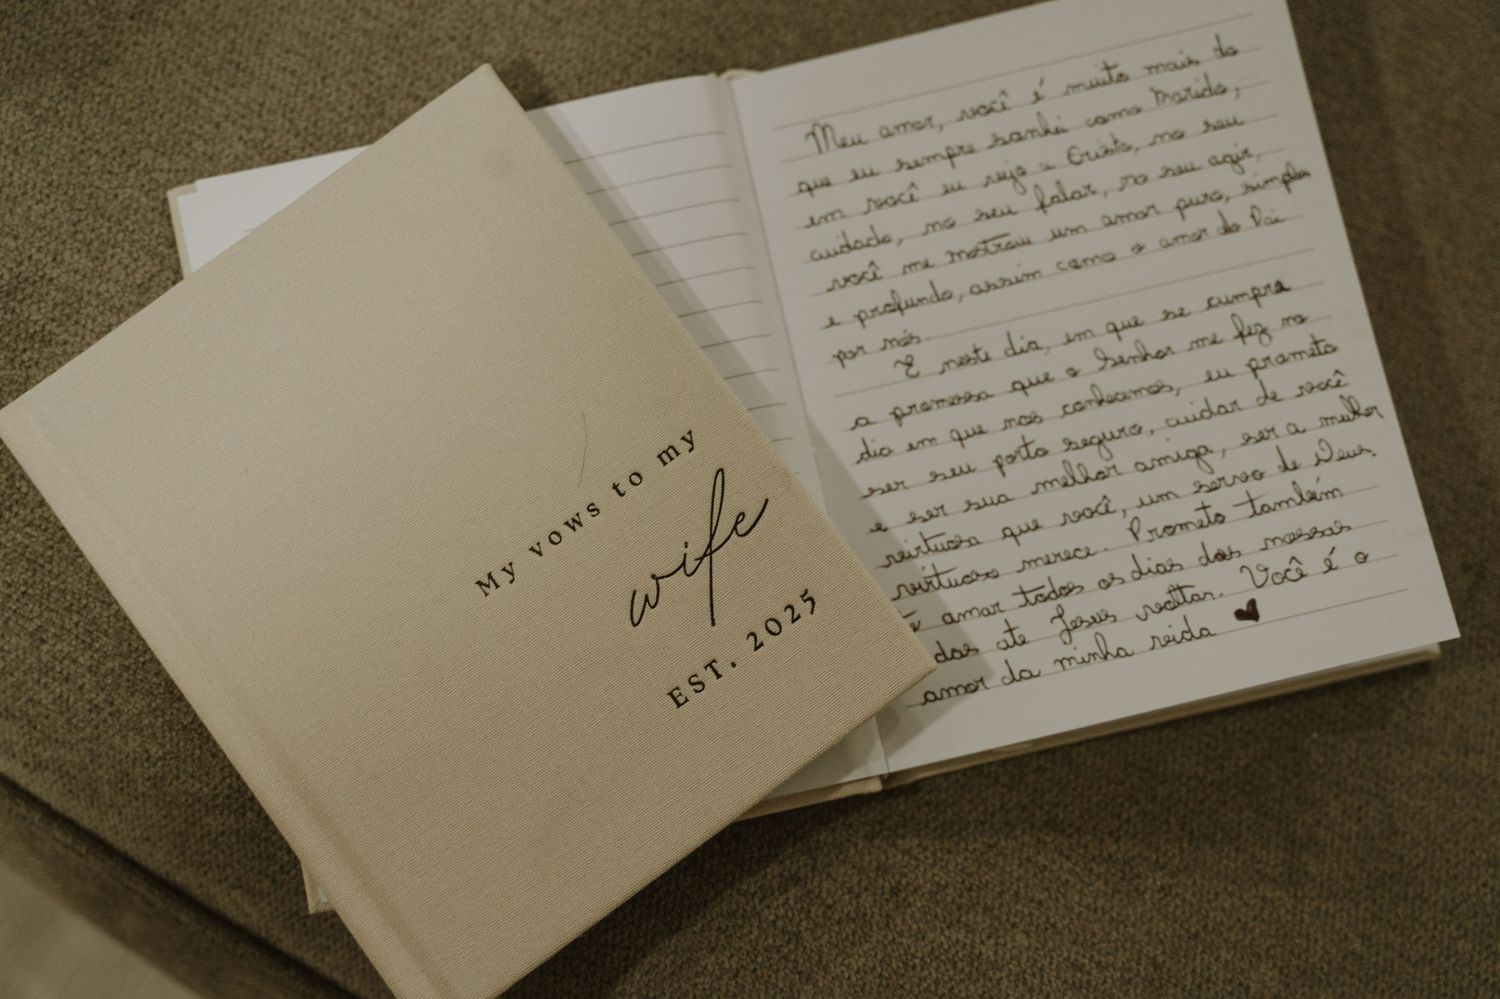 My vows to my
wife
EST. 2025
Meu amor, você é muito mais do
que eu sempre sonhei como Marido,
em você eu vejo a Cristo, no seu
cuidado, no seu falar, no seu agir,
você me mostrou um amor puro, simples
e profundo, assim como o amor do Pai
por nós.
E neste dia, em que se cumpre
a promessa que o Senhor me fez no
dia em que nos conhecemos, eu prometo
ser seu porto seguro, cuidar de você
e ser sua melhor amiga, ser a mulher
virtuosa que você, um servo de Deus
virtuoso merece. Prometo também
te amar todos os dias das nossas
das ate Jesus voltar. Você é o
amor da minha vida ♥